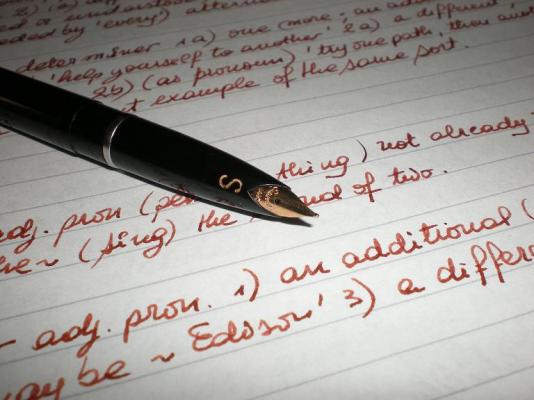 understood
by 'every') alterna
determiner 1a) one (more, an ad
'help yourself to another' 2a) a different
2b) (as pronoun) 'try one path, then an
t example of the same sort.
thing) not already
adj. pron (pe
~ (sing) the nd of two.
S
- adj. pron. 1) an additional (
ay be ~ Edison' 3) a differ